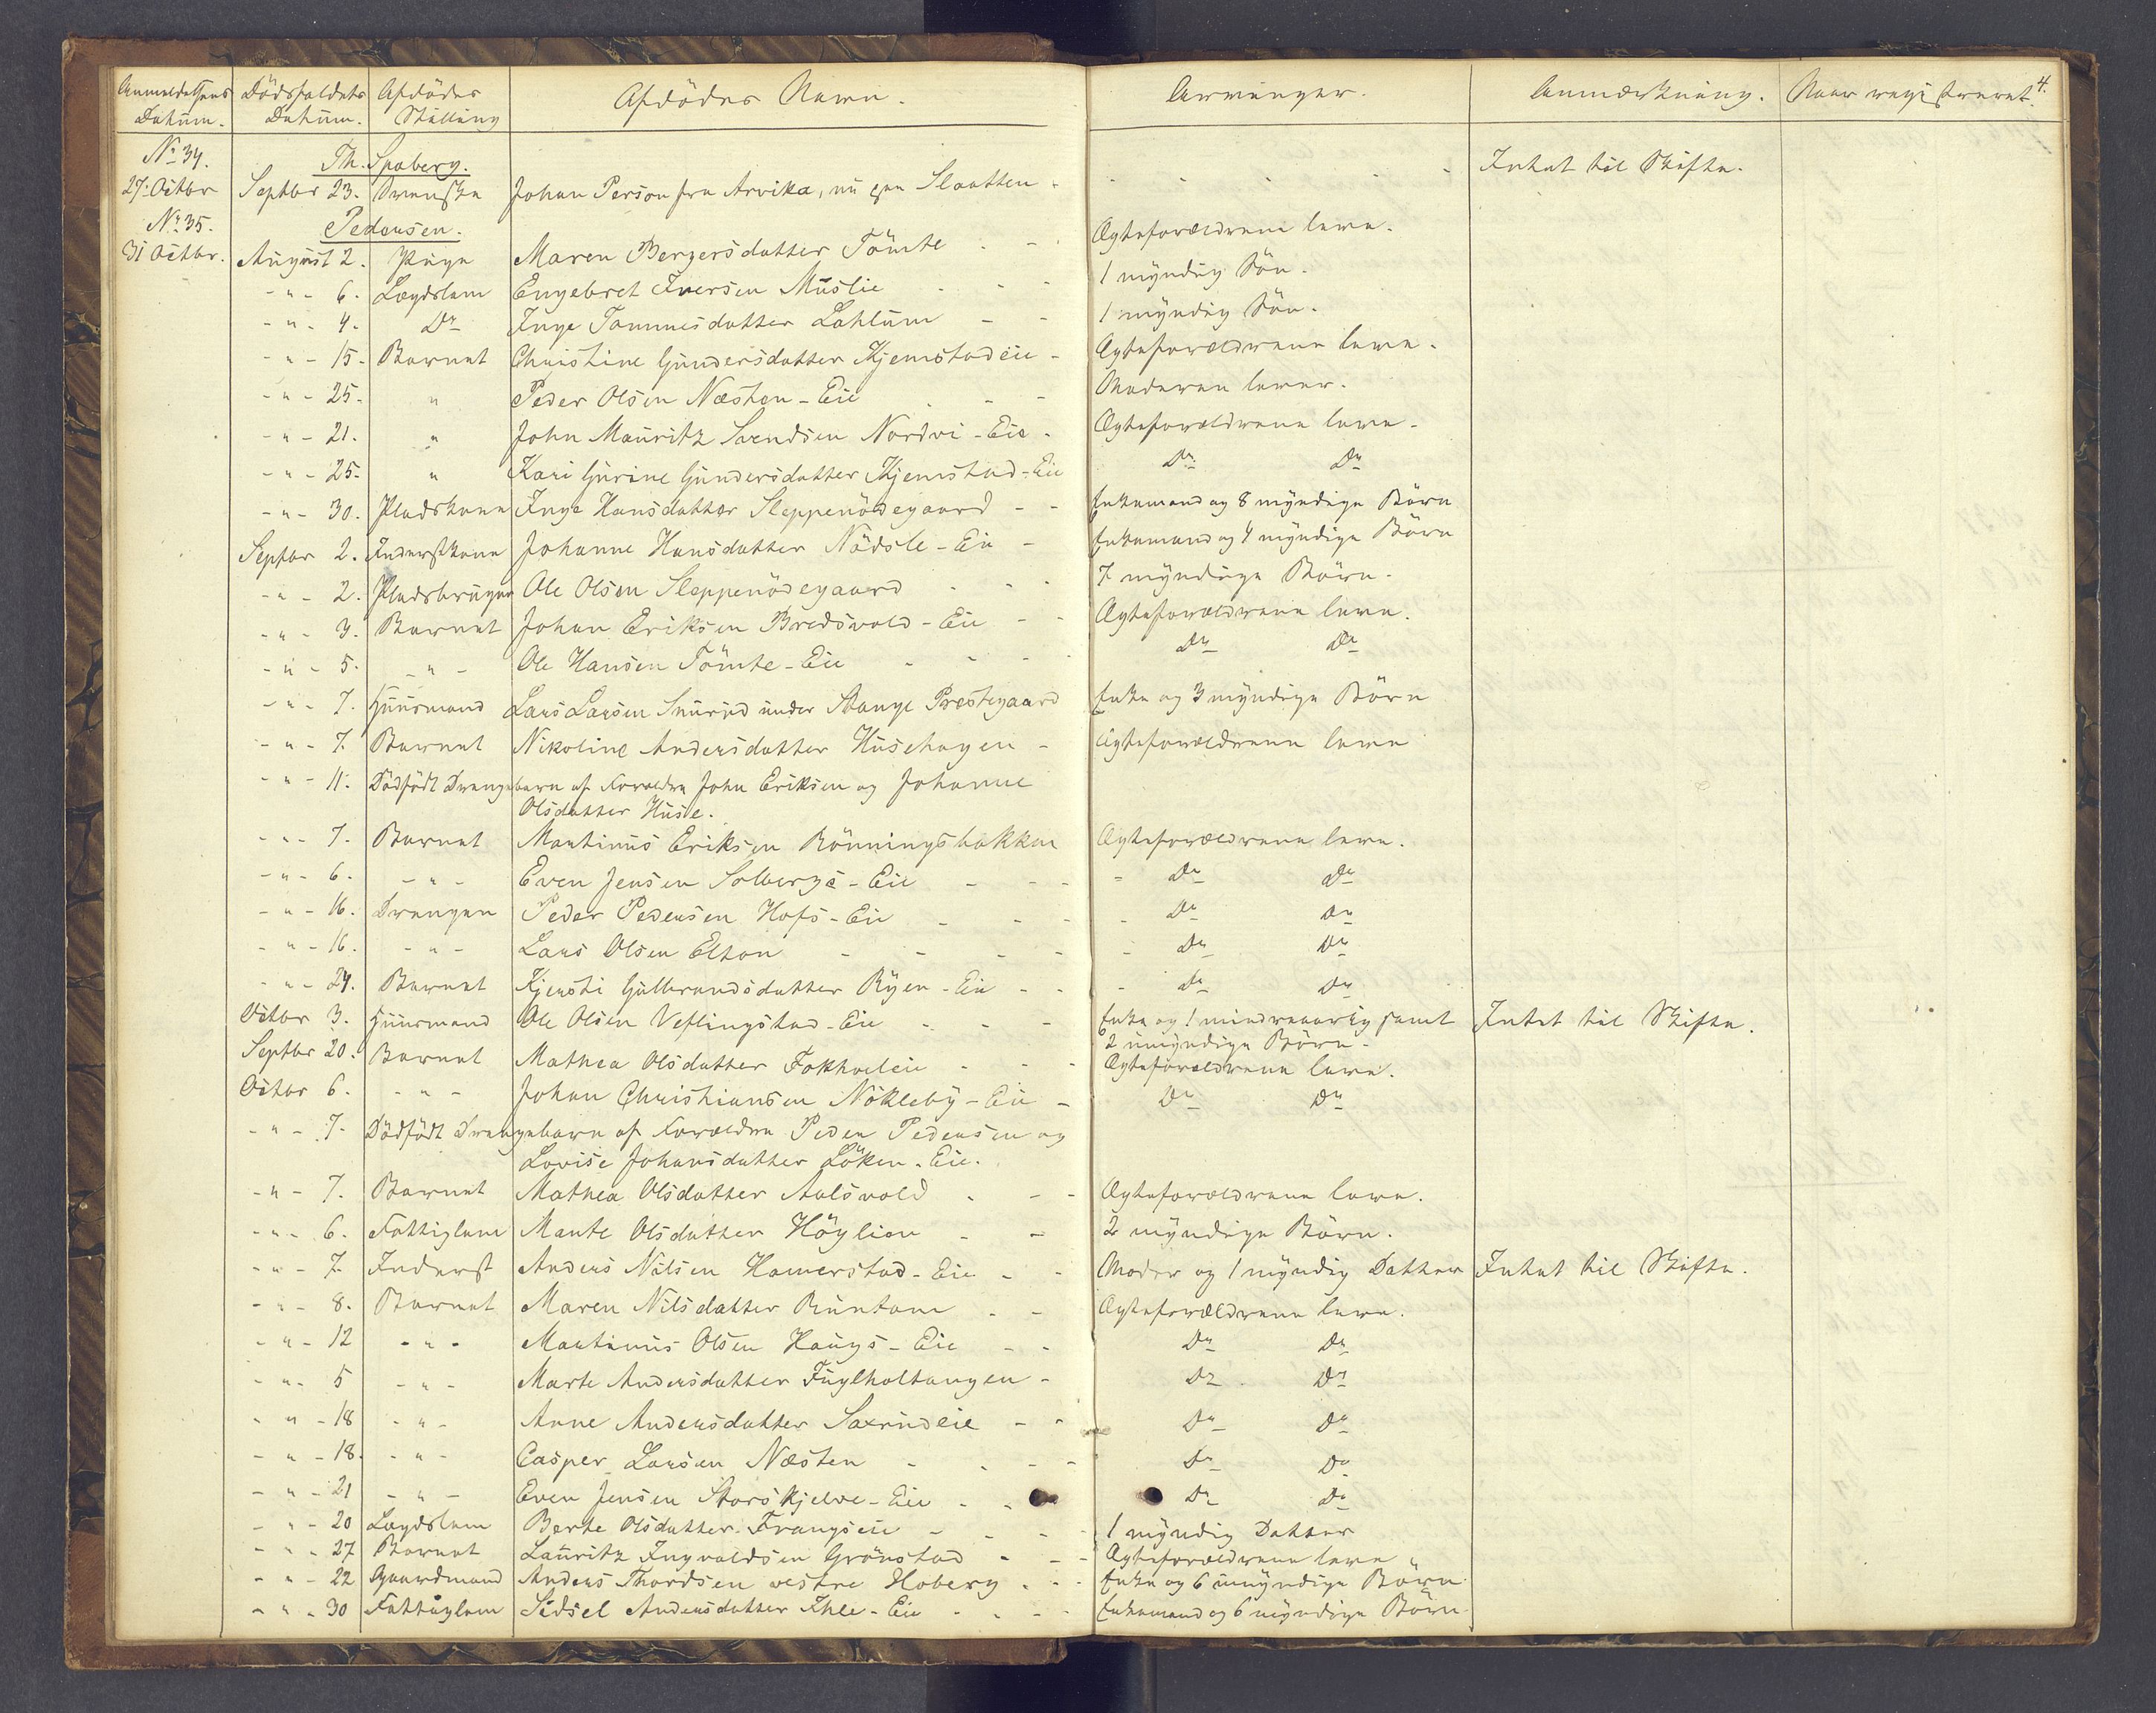 Anmeldelsens Datum. Dödsfaldets Datum. Afdödes Stilling Afdödes Navn. Arvinger. Anmærkning. Naar registreret. 4.
No 34. Th. Spaberg. Intet til Skifte.
27. Octbr Septbr 23. Svenske Johan Person fra Arvika, nu paa Slaatten
No 35. Pedersen.
31 Octbr. August 2. Pige Maren Bergersdatter Tömte - - Ægteforældrene leve.
- " - 6. Lægdslem Engebret Iversen Muslie - - - 1 myndig Sön.
- " - 4. Do Inge Tommesdatter Lahlum - - 1 myndig Sön.
- " - 15. Barnet Christine Gundersdatter Kjemstadeie - Ægteforældrene leve.
- " - 25. " Peder Olsen Næsten-Eie - - Moderen lever.
- " - 21. " John Mauritz Svendsen Nordvi-Eie - Ægteforældrene leve.
- " - 25. " Kari Gurine Gundersdatter Kjemstad-Eie Do Do
- " - 30. Pladskone Inge Hansdatter Sleppenödegaard - - Enkemand og 8 myndige Börn
Septbr 2. Inderstkone Johanne Hansdatter Nödsle-Eie - Enkemand og 4 myndige Börn
- " - 2. Pladsbruger Ole Olsen Sleppenödegaard - - - 7 myndige Börn.
- " - 3. Barnet Johan Eriksen Bredsvold-Eie - - Ægteforældrene leve.
- " - 5. - " - Ole Hansen Tömte-Eie - - - Do Do
- " - 7. Huusmand Lars Larsen Snurud under Stange Præstegaard Enke og 3 myndige Börn
- " - 7. Barnet Nikoline Andersdatter Husehagen - Ægteforældrene leve
- " - 11. Dödfödt Drengebarn af Forældre John Eriksen og Johanne
Olsdatter Husle.
- " - 7. Barnet Martinus Eriksen Rönningsbakken Ægteforældrene leve.
- " - 6. - " - Even Jensen Solbergs-Eie - - - - Do Do
- " - 16. Drengen Peder Pedersen Hofs-Eie - - - - Do Do
- " - 16. - " - Lars Olsen Elton - - - - - Do Do
- " - 24. Barnet Kjersti Gulbrandsdatter Ryen-Eie - - - Do Do
Octbr 3. Huusmand Ole Olsen Veflingstad-Eie - - - Enke og 1 mindreaarig samt Intet til Skifte.
2 umyndige Börn.
Septbr 20. Barnet Mathea Olsdatter Fokholeie - - - Ægteforældrene leve.
Octbr 6. - " - Johan Christiansen Nökleby-Eie - Do Do
- " - 7. Dödfödt Drengebarn af Forældre Peder Pedersen og
Lovise Johansdatter Löken-Eie.
- " - 7. Barnet Mathea Olsdatter Aalsvold - - - Ægteforældrene leve.
- " - 6. Fattiglem Marte Olsdatter Höylien - - 2 myndige Börn.
- " - 7. Inderst Anders Nilsen Hamerstad-Eie - - Moder og 1 myndig Datter Intet til Skifte.
- " - 8. Barnet Maren Nilsdatter Runtom - - Ægteforældrene leve.
- " - 12 - " - Martinus Olsen Haugs-Eie - - Do Do
- " - 5 - " - Marte Andersdatter Fuglholtangen - Do Do
- " - 18 - " - Anne Andersdatter Saxrudeie - - Do Do
- " - 18. - " - Casper Larsen Næsten - - - - Do Do
- " - 21 - " - Even Jensen Storskjelve-Eie - - Do Do
- " - 20 Lægdslem Berte Olsdatter Frangseie - - - - 1 myndig Datter
- " - 27 Barnet Lauritz Ingvaldsen Grönstad - - - Ægteforældrene leve "
- " - 22 Gaardmand Anders Thordsen vestre Hoberg - - - Enke og 6 umyndige Börn
- " - 30 Fattiglem Sidsel Andersdatter Ihle-Eie - - - - Enkemand og 6 myndige Börn